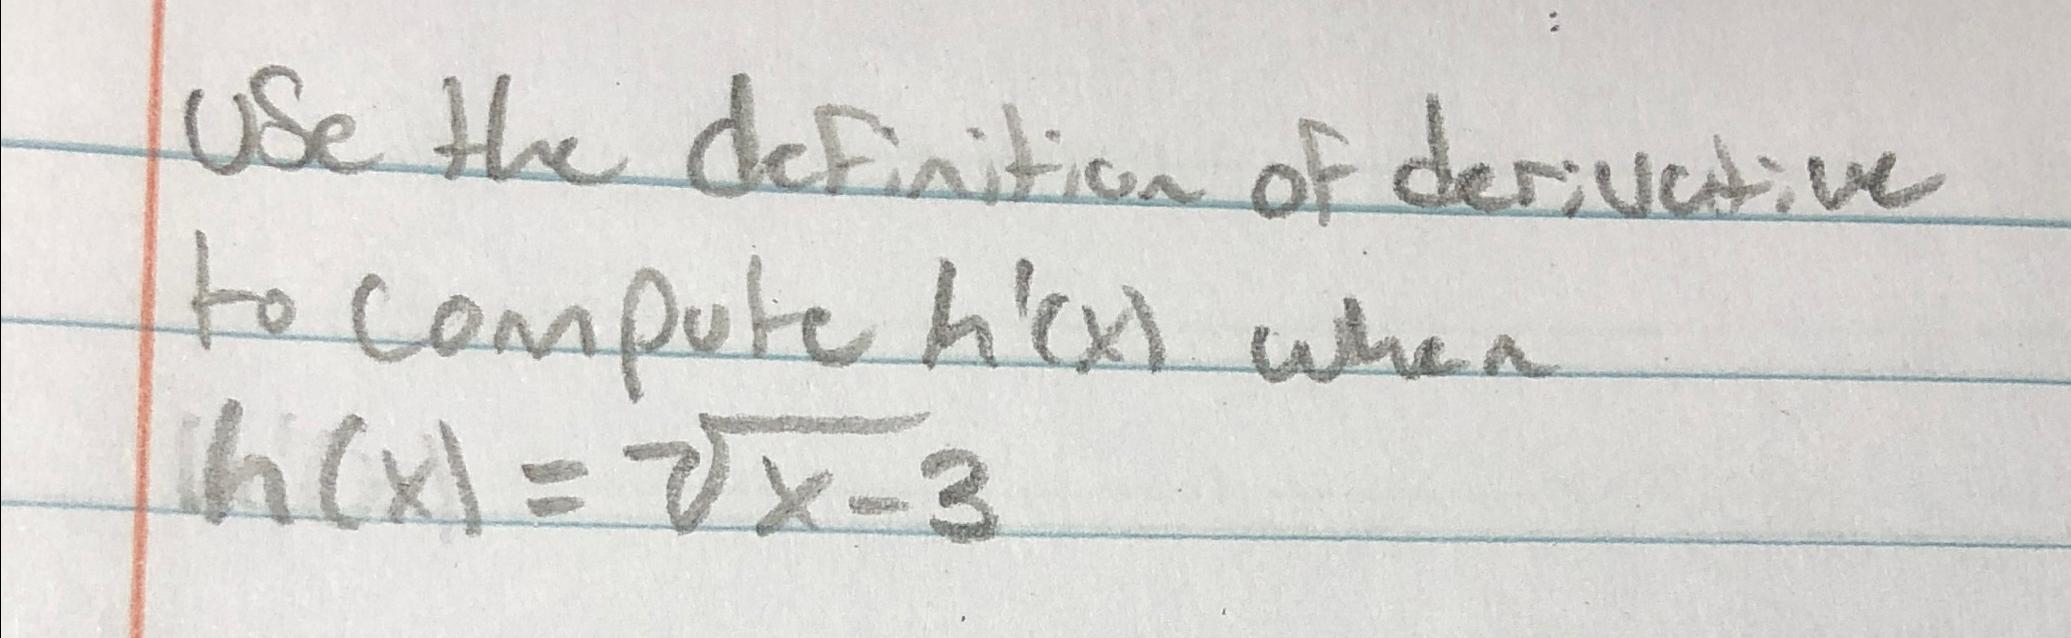 Use the definition of derivative
to compute h'(x) when
h(x) = √x-3